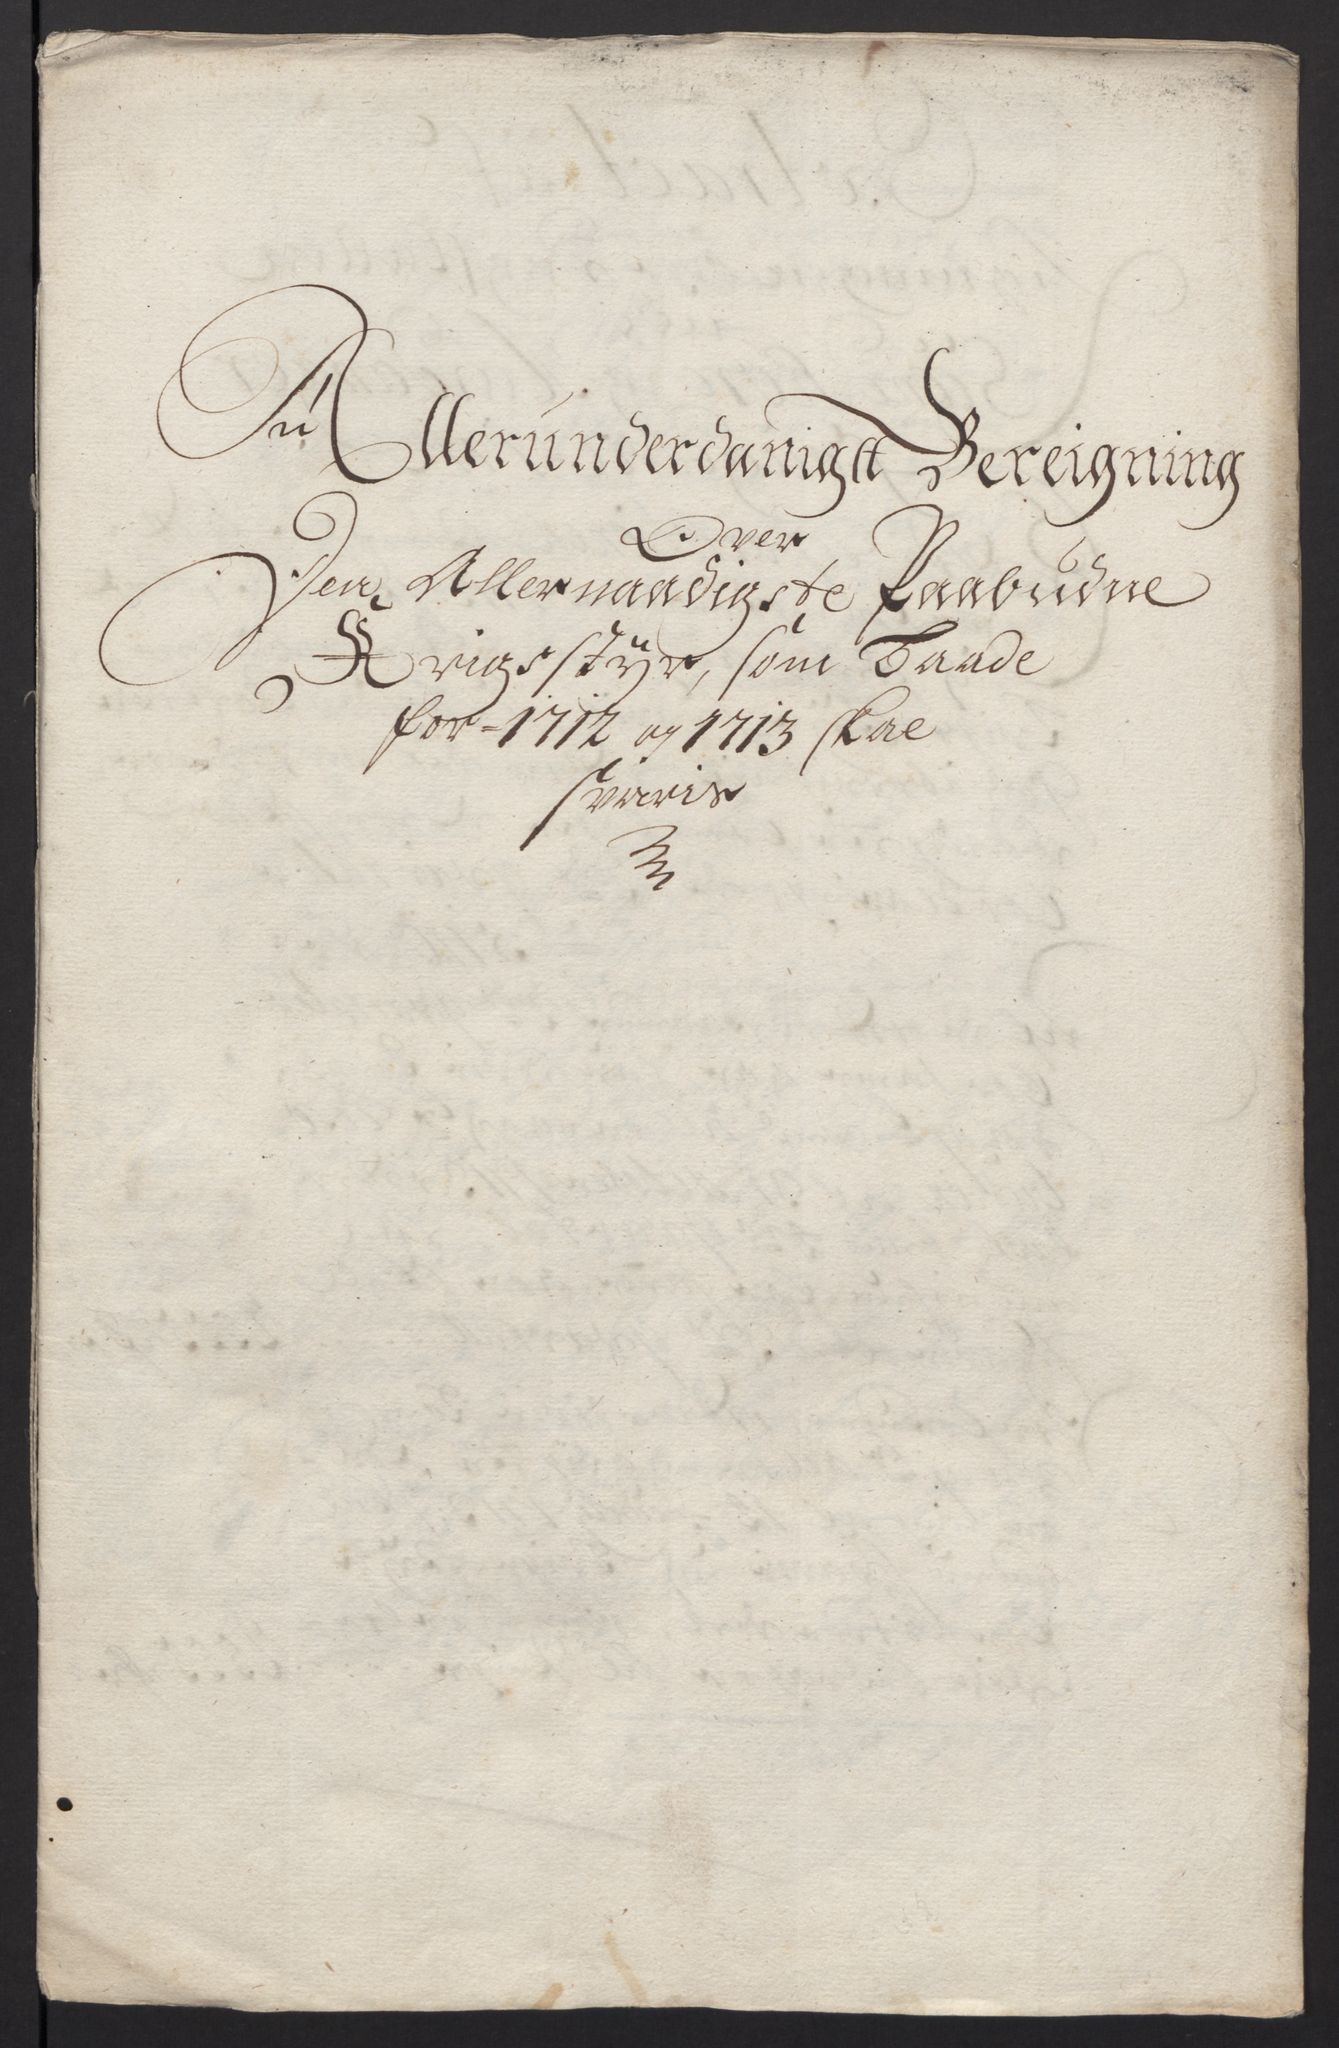 En Allerunderdanigst Bereigning
Over
Den Allernaadigste Paabudne
Krigsstÿr, som Baade
for 1712 og 1713 skal
svaris